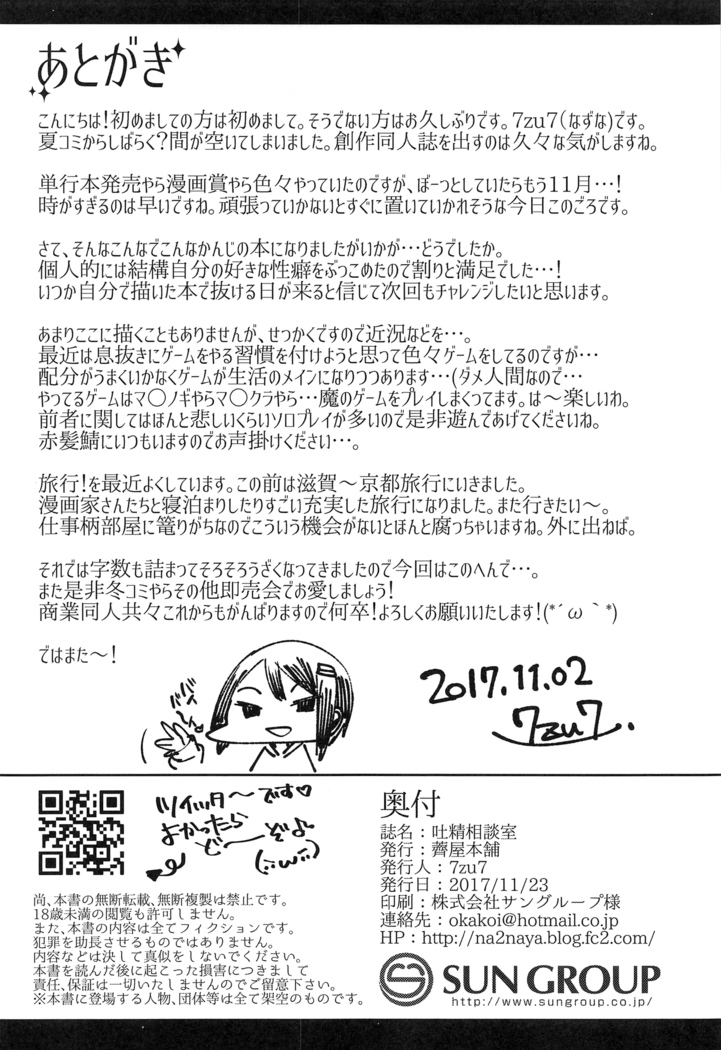 あとがき
こんにちは!初めましての方は初めまして。そうでない方はお久しぶりです。7zu7(なずな)です。
夏コミからしばらく?間が空いてしまいました。創作同人誌を出すのは久々な気がしますね。
単行本発売やら漫画賞やら色々やっていたのですが、ぼーっとしていたらもう11月…!
時がすぎるのは早いですね。頑張っていかないとすぐに置いていかれそうな今日このごろです。
さて、そんなこんなでこんなかんじの本になりましたがいかが…どうでしたか。
個人的には結構自分の好きな性癖をぶっこめたので割りと満足でした…!
いつか自分で描いた本で抜ける日が来ると信じて次回もチャレンジしたいと思います。
あまりここに描くこともありませんが、せっかくですので近況などを…。
最近は息抜きにゲームをやる習慣を付けようと思って色々ゲームをしてるのですが…
配分がうまくいかなくゲームが生活のメインになりつつあります…(ダメ人間なので…
やってるゲームはマ〇ノギやらマ〇クラやら…魔のゲームをプレイしまくってます。は〜楽しいわ。
前者に関してはほんと悲しいくらいソロプレイが多いので是非遊んであげてくださいね。
赤髪鯖にいつもいますのでお声掛けください…。
旅行!を最近よくしています。この前は滋賀〜京都旅行にいきました。
漫画家さんたちと寝泊まりしたりすごい充実した旅行になりました。また行きたい〜。
仕事柄部屋に篭りがちなのでこういう機会がないとほんと腐っちゃいますね。外に出ねば。
それでは字数も詰まってそろそろうざくなってきましたので今回はこのへんで…。
また是非冬コミやらその他即売会でお愛しましょう!
商業同人共々これからもがんばりますので何卒!よろしくお願いいたします!(*´ω｀*)
ではまた〜!
バイバイ
2017.11.02
7zu7.
ツイッター〜です♡
よかったら
ど〜ぞよ
(:ω:)
尚、本書の無断転載、無断複製は禁止です。
18歳未満の閲覧も許可しません。
また、本書の内容は全てフィクションです。
犯罪を助長させるものではありません。
内容などは決して真似をしないでください。
本書を読んだ後に起こった損害につきまして
責任、保証は一切いたしませんのでご留意下さい。
※本書に登場する人物、団体等は全て架空のものです。
奥付
誌名：吐精相談室
発行：薺屋本舗
発行人：7zu7
発行日：2017/11/23
印刷：株式会社サングループ様
連絡先：okakoi@hotmail.co.jp
HP：http://na2naya.blog.fc2.com/
SUN GROUP
http://www.sungroup.co.jp/